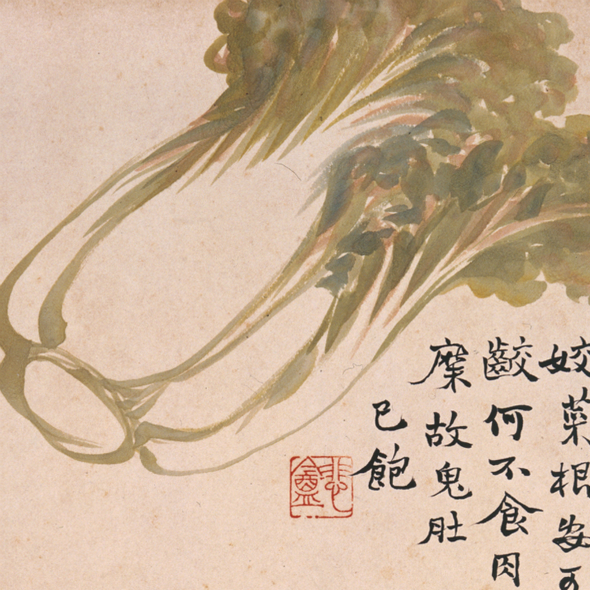 姣菜根安可
齩何不食肉
糜故鬼肚
已飽
悲盦